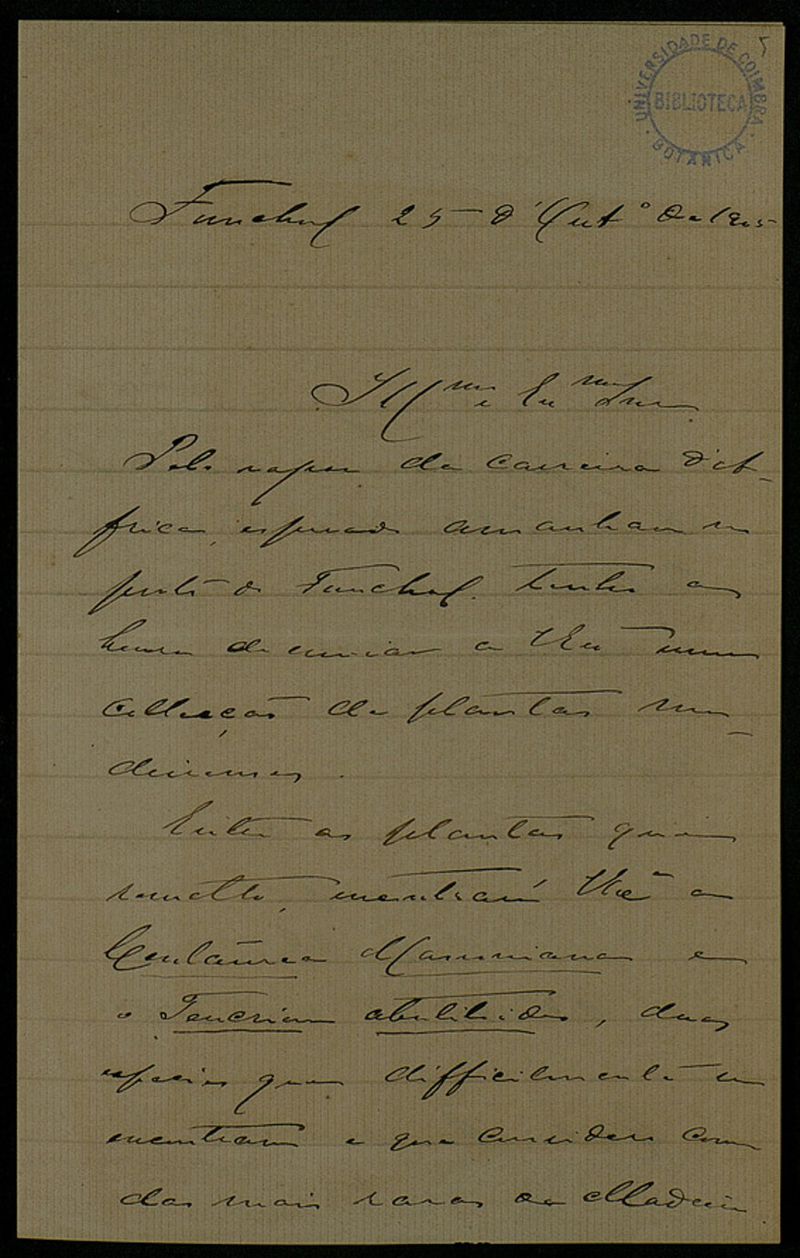 5
UNIVERSIDADE DE COIMBRA
BIBLIOTECA
BOTANICA
Funchal 25 d'Outº de 1905
Illmo e Exmo Snr
Pelo vapor da carreira d'Af-
frica, esperado amanhan no
porto do Funchal, tenho a
honra de enviar a VExª uma
collecção de plantas ma-
deirenses.
Entre as plantas que
remetto, encontrará VExª a
Centaurea Massoniana e
o Teucrium abutiloides, duas
especies que difficilmente se
encontram e que considero como
das mais raras da Madeira